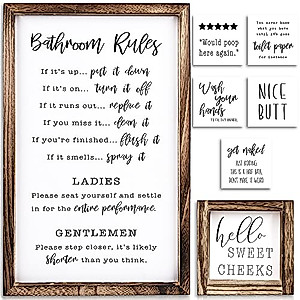 Bathroom Rules
If it's up... put it down
If it's on... turn it off
If it runs out... replace it
If you miss it... clean it
If you're finished... flush it
If it smells... spray it
LADIES
Please seat yourself and settle
in for the entire performance.
GENTLEMEN
Please step closer, it's likely
shorter than you think.
"Would poop
here again."
You never know
what you have
until it's gone
toilet paper
for instance
Wash your
hands
NICE
BUTT
get naked
JUST KIDDING
THIS IS A HALF BATH,
DON'T MAKE IT WEIRD
hello
SWEET
CHEEKS